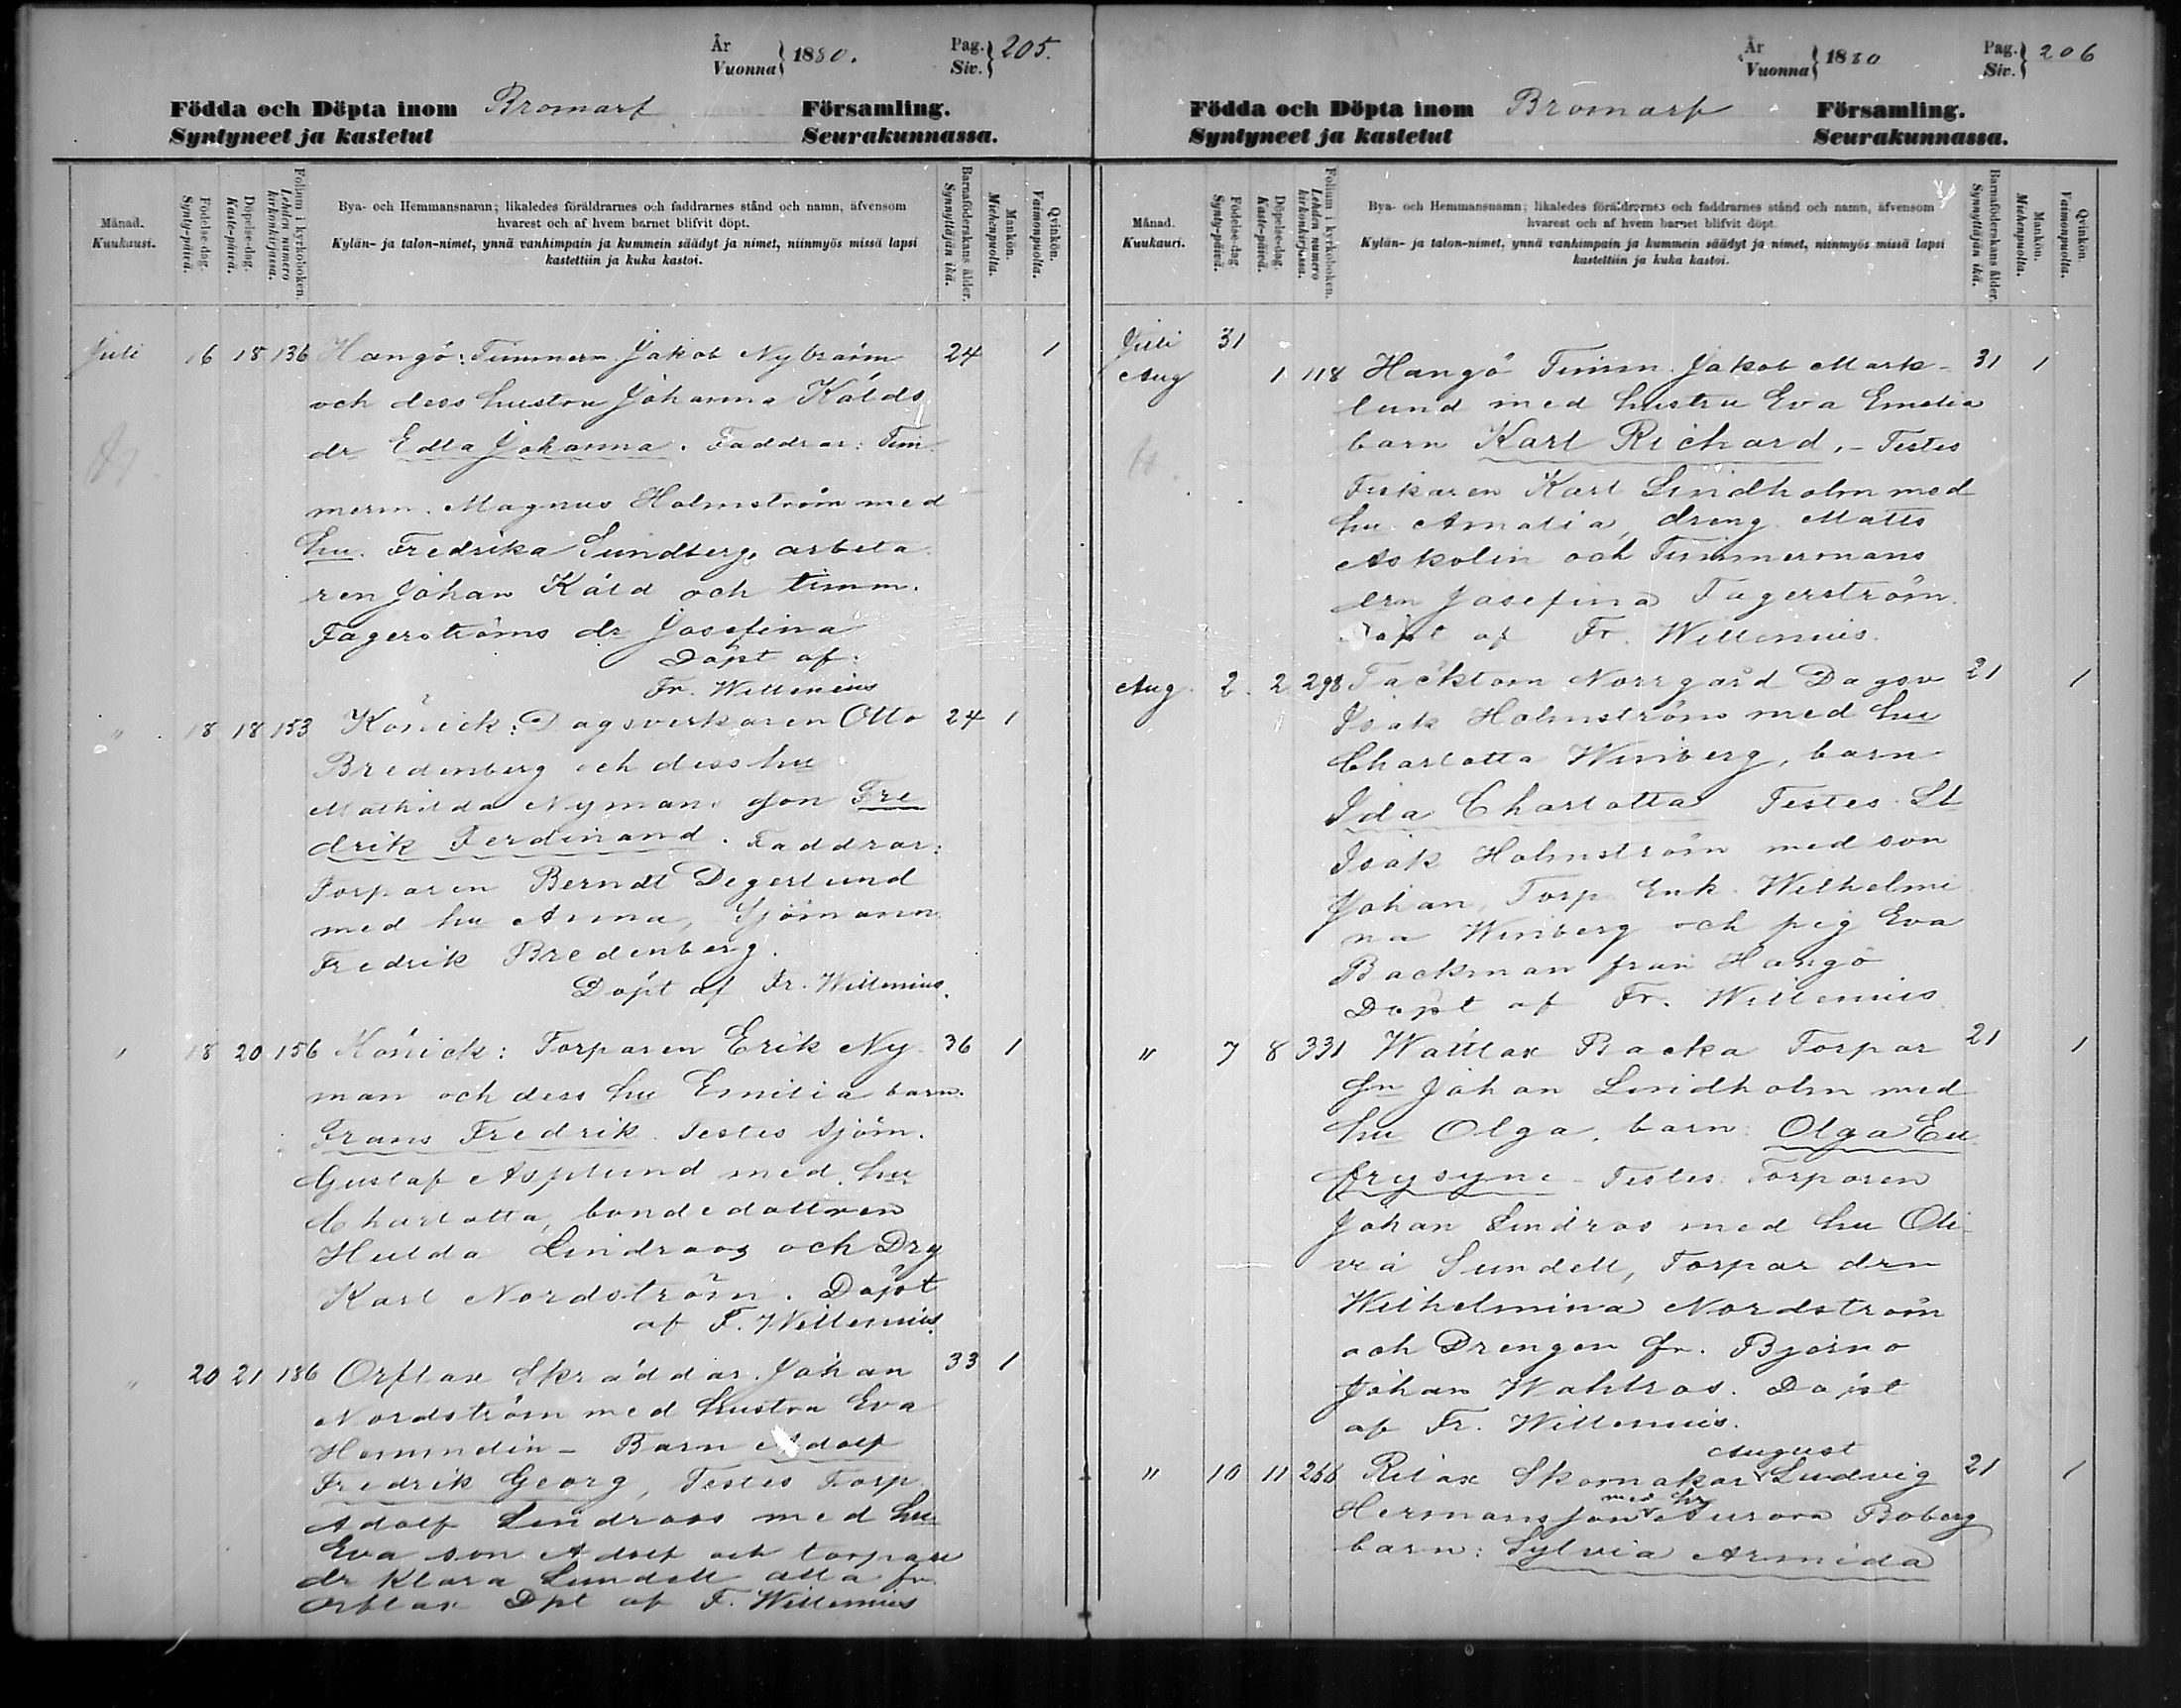 År
Vuonna } 1880.
Pag.
Siv. } 205.
Födda och Döpta inom Bromarf Församling.
Syntyneet ja kastetut Seurakunnassa.
Månad.
Kuukausi.
Födelse-dag.
Synty-päivä.
Döpelse-dag.
Kaste-päivä.
Folium i kyrkoboken.
Lehden numero kirkonkirjassa.
Bya- och Hemmansnamn; likaledes föräldrarnes och faddrarnes stånd och namn, äfvensom
hvarest och af hvem barnet blifvit döpt.
Kylän- ja talon-nimet, ynnä vanhimpain ja kummein säädyt ja nimet, niinmyös missä lapsi
kastettiin ja kuka kastoi.
Barnaföderskans ålder.
Synnyttäjän ikä.
Mankön.
Miehenpuolta.
Qvinkön.
Vaimonpuolta.
Juli 16 18 136 Hangö: Timmerm Jakob Nybröm 24 1
och dess hustru Johanna Kålds
dr Edla Johanna. Faddrar: Tim
merm. Magnus Holmström med
hu. Fredrika Sundberg, arbeta
ren Johan Kåld och timm.
Fagerströms dr Josefina
Döpt af:
Fr. Willenius
" 18 18 153 Könick: Dagsverkaren Otto 24 1
Bredenberg och dess hu
Mathilda Nyman, son Fre
drik Ferdinand. Faddrar:
Torparen Berndt Degerlund
med hu Anna, Sjömann
Fredrik Bredenberg.
Döpt af Fr. Willenius.
" 18 20 156 Könick: Torparen Erik Ny 36 1
man och dess hu Emilia barn.
Frans Fredrik. Testes Sjöm.
Gustaf Asplund med hu
Charlotta, bondedottren
Hulda Lindroos och Drg
Karl Nordström. Döpt
af F. Willenius.
" 20 21 186 Orflax Skräddar. Johan 33 1
Nordström med hustru Eva
Barn Adolf
Fredrik Georg, Testes Torp.
Adolf Lindroos med hu
Eva son Adolf och torpare
dr Klara Sundell alla fr.
Orflax Dpt af F. Willenius
År
Vuonna } 1880
Pag.
Siv. } 206
Födda och Döpta inom Bromarf Församling.
Syntyneet ja kastetut Seurakunnassa.
Månad.
Kuukauri.
Födelse-dag
Synty-päivä.
Döpelse-dag.
Kaste-päivä.
Folium i kyrkoboken.
Lehden numero kirkonkirjassa.
Bya- och Hemmansnamn; likaledes föräldrernes och faddrarnes stånd och namn, äfvensom
hvarest och af hvem barnet blifvit döpt.
Kylän- ja talon-nimet, ynnä vanhimpain ja kummein säädyt ja nimet, niinmyös missä lapsi
kastettiin ja kuka kastoi.
Barnaföderskans ålder.
Synnyttäjän ikä.
Mankön.
Miehenpuolta.
Qvinkön.
Vaimonpuolta.
Juli 31
Aug 1 118 Hangö Timm. Jakob Mark- 31 1
lund med hustru Eva Emelia
barn Karl Richard. - Testes
Fiskaren Karl Lindholm med
hu Amalia, dreng Matts
Askolin och Timmermans
Josefina Fagerström.
Döpt af Fr. Willenius.
Aug. 2. 2 298 Täcktom Norrgård Dagsv 21 1
Isak Holmström med hu
Charlotta Winberg, barn
Ida Charlotta Testes
Isak Holmström med son
Johan, Torp Enk. Wilhelmi
na Winberg och pig Eva
Backman från Hangö
Döpt af Fr. Willenius.
" 7 8 331 Wättlax Backa Torpar 21 1
Sn Johan Lindholm med
hu Olga, barn: Olga Eu
frysyne - Testes: Torparen
Johan Lindros med hu Oli
via Sundell, Torpar drn
Wilhelmina Nordström
och Drengen fr. Bjerno
Johan Wahlros. Döpt
af Fr. Willenius.
August
" 10 11 266 Rilax Skomakar Ludvig 21 1
med hu
Hermansson Aurora Boberg
barn: Sylvia Armida